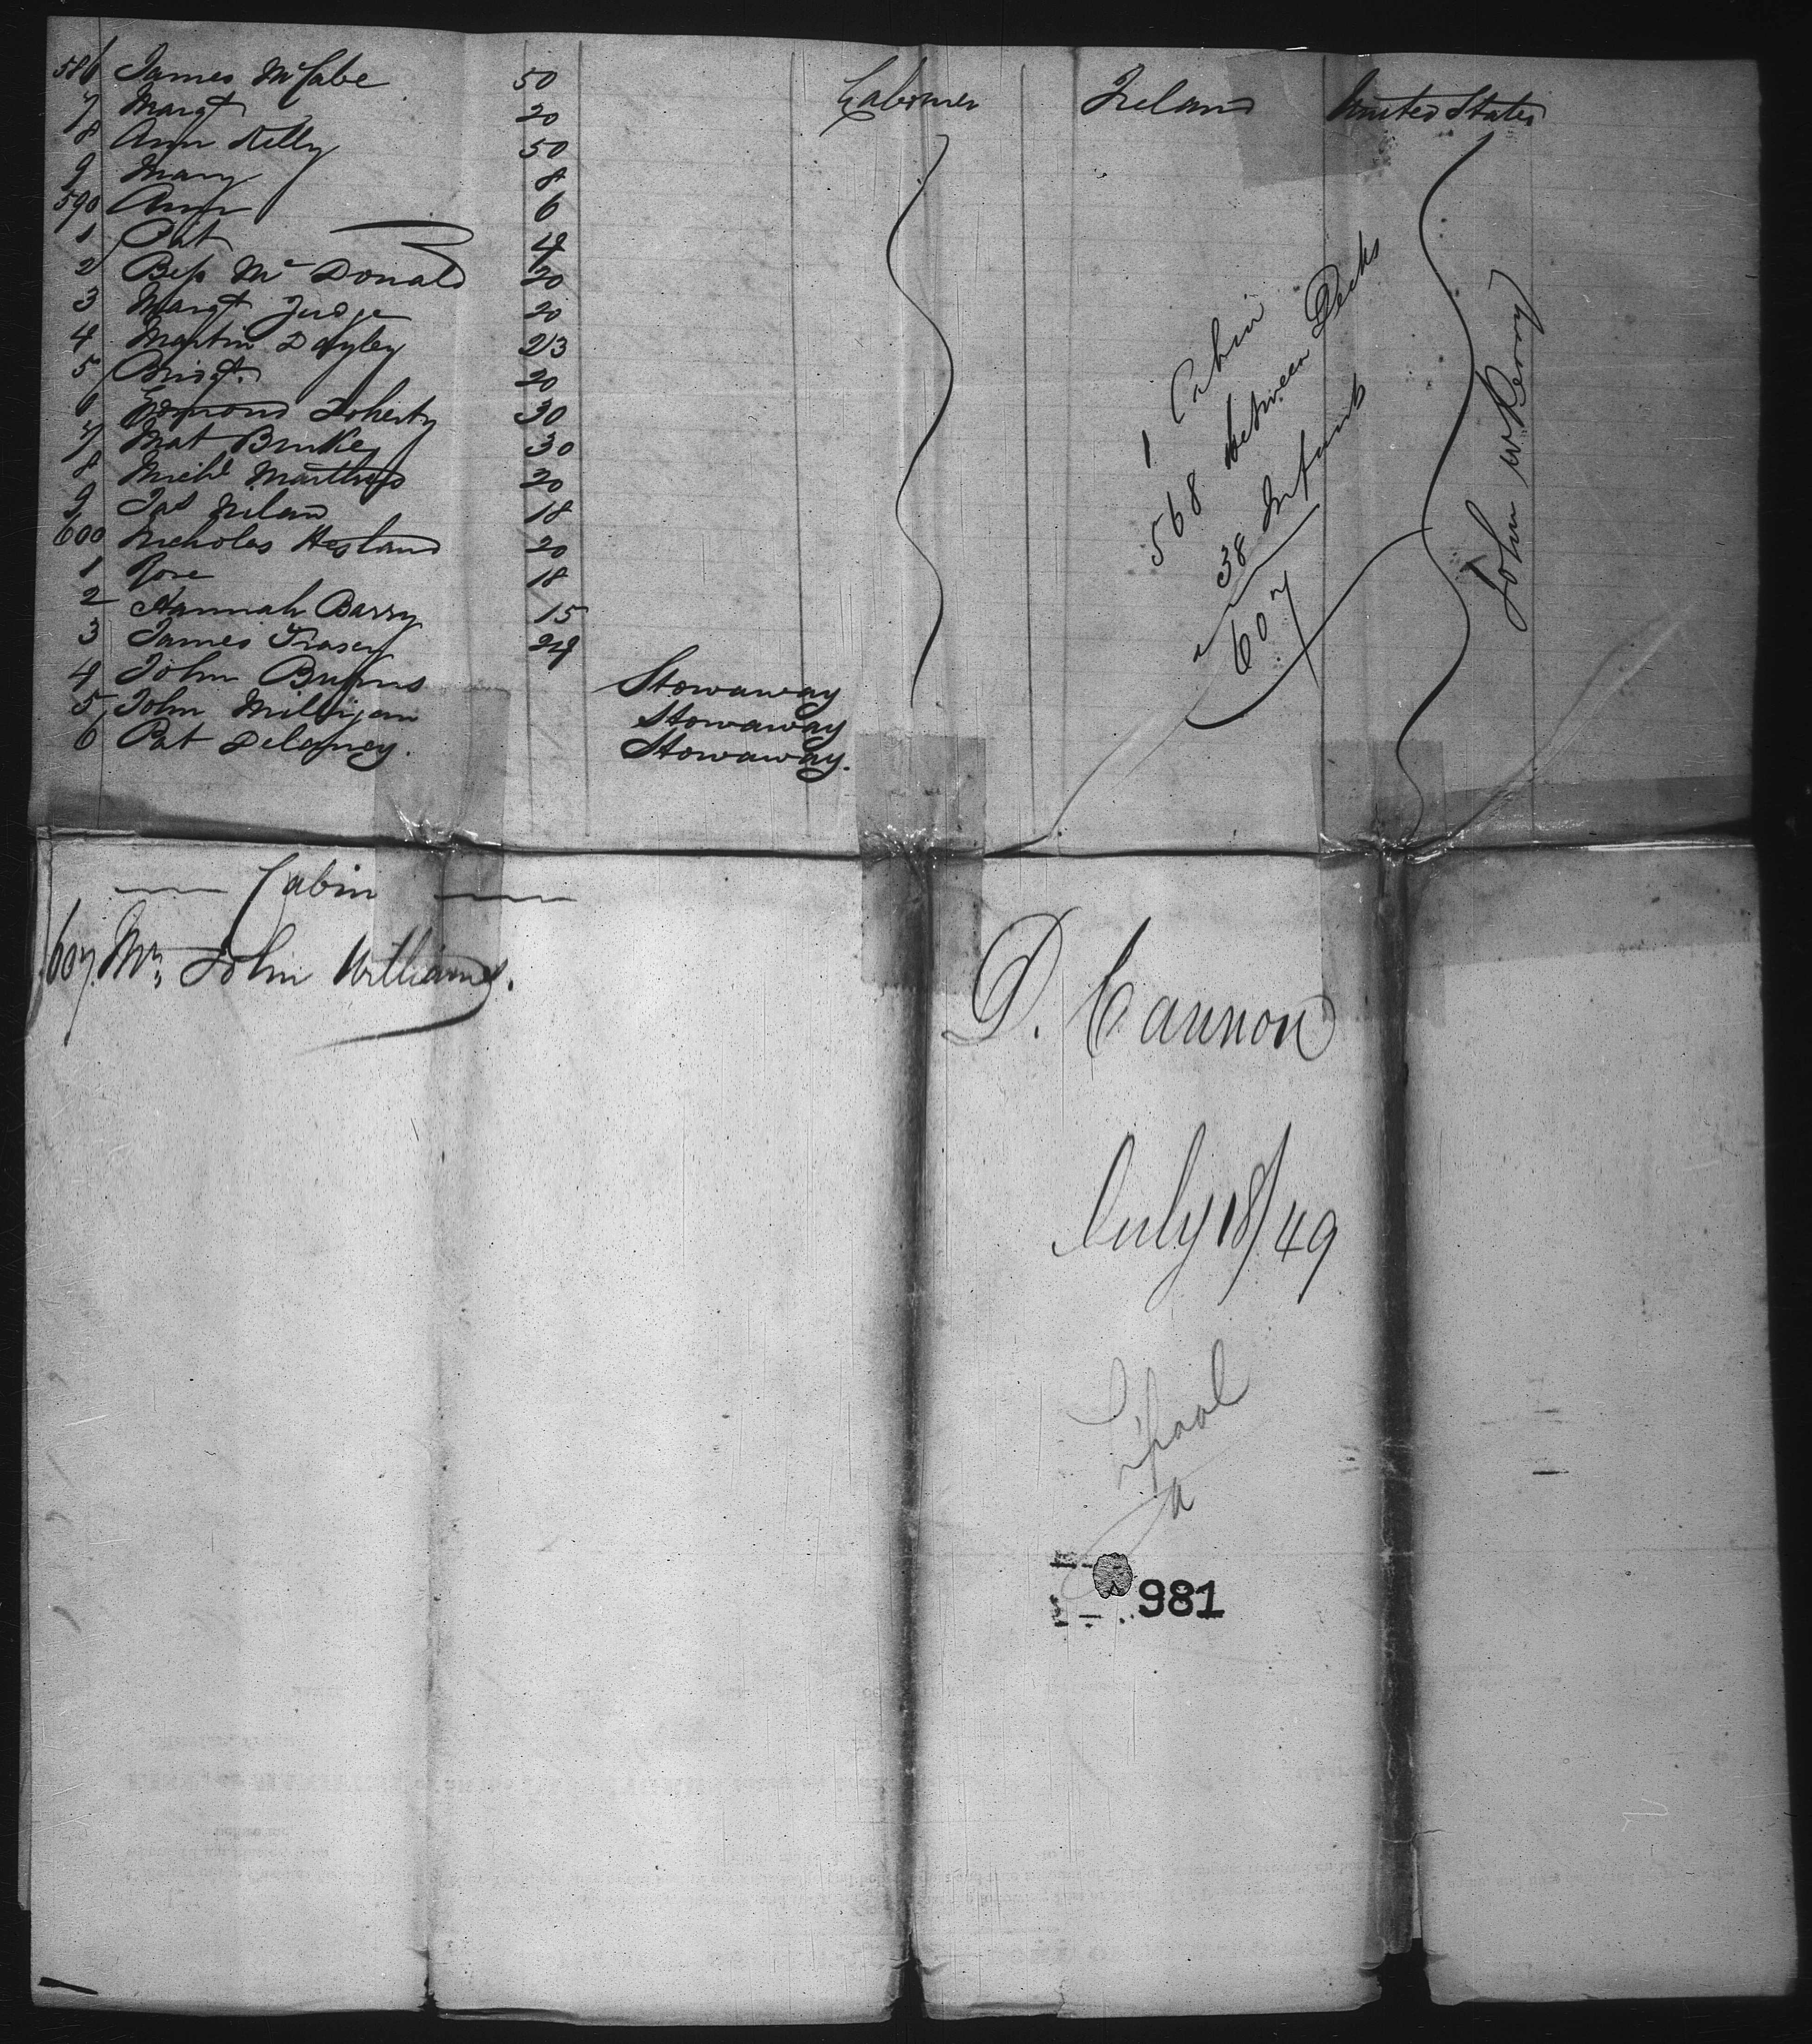 586 James McCabe 50 Labourer Ireland United States
7 Margt 20
8 Ann Kelly 50
9 Mary 8
590 Ann 6
1 Pat 4
2 Bess Mc Donald 20
3 Margt Judge 20
4 Martin 23
5 Bridgt. 20
6 Edmond Doherty 30
7 Mat Burke 30
8 Michl 20
9 Jas Nilan 18
600 Nicholas Hesland 20
1 Rose 18
2 Hannah Barry 15
3 James 24
4 John Burns Stowaway
5 John Milligan Stowaway
6 Pat Delaney. Stowaway.
1 Cabin
568 between Decks
38 Infants
607
John W Berry
Cabin
607. Mr. John Williams.
D. Cannon
July 18/49
L'pool
a
981